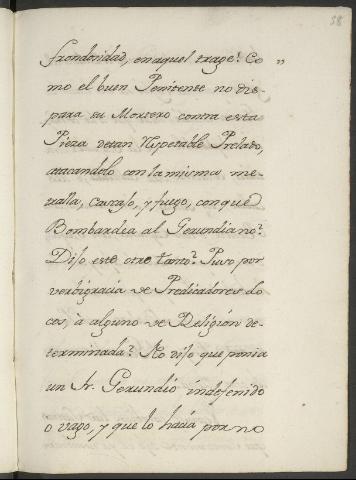 58
frondosidad, en aquel trage? Co „
mo el buen Penitente no dis-
para su Mortero contra esta
Pieza detan Respetable Prelado,
atacandolo con la misma me-
tralla, cascajo, y fuego, con que
Bombardea al Gerundiano?
Dijo este otro tanto? Puso por
verbigracia de Predicadores lo
cos, à alguno de Religión de-
terminada? No dijo que ponia
un Fr. Gerundio indefenido
o vago, y que lo hacia por no